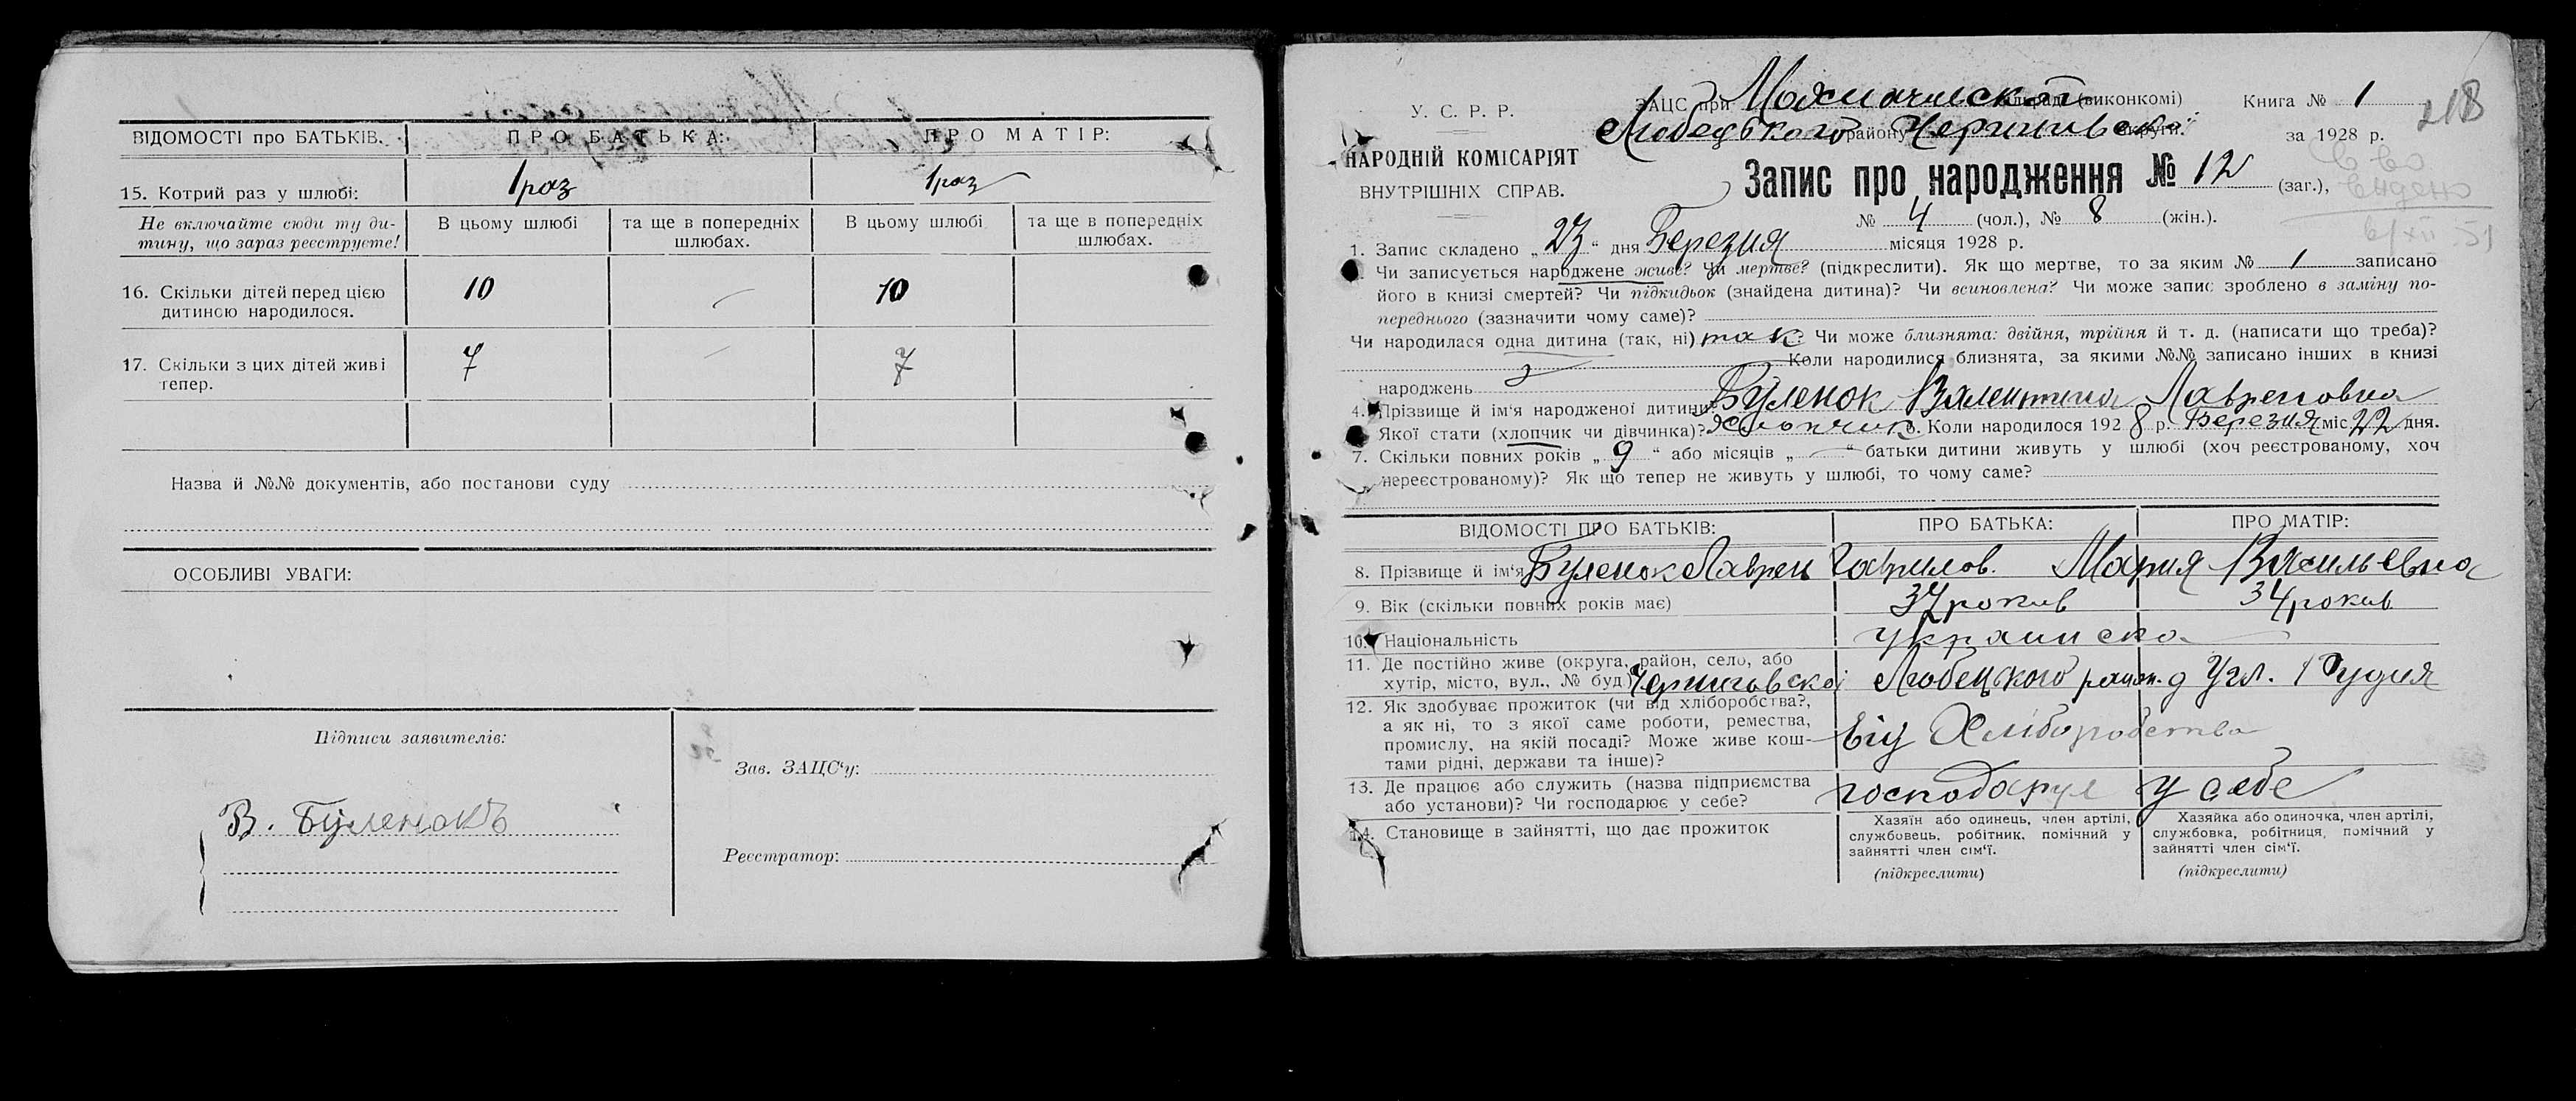 ВІДОМОСТІ про БАТЬКІВ. ПРО БАТЬКА: ПРО МАТІР:
15. Котрий раз у шлюбі: 1 раз 1 раз
Не включайте сюди ту ди- В цьому шлюбі та ще в попередніх В цьому шлюбі та ще в попередніх
тину, що зараз реєструєте! шлюбах. шлюбах.
16. Скільки дітей перед цією 10 — 10
дитиною народилося.
17. Скільки з цих дітей живі 7 — 7
тепер.
Назва й №№ документів, або постанови суду
ОСОБЛИВІ УВАГИ:
Підписи заявителів:
Зав. ЗАЦС'у:
В. Буленокъ
Реєстратор:
У. С. Р. Р.
НАРОДНІЙ КОМІСАРІЯТ
ВНУТРІШНІХ СПРАВ.
ЗАЦС при сільраді (виконкомі) Книга № 1
218
Любецького району Черниговскої округи. за 1928 р.
Запис про народження № 12 (заг.),
№ 4 (чол.), № 8 (жін.).
св во
видено
6/XII 51
1. Запис складено „23“ дня Березня місяця 1928 р.
Чи записується народжене живе? Чи мертве? (підкреслити). Як що мертве, то за яким № 1 записано
його в книзі смертей? Чи підкидьок (знайдена дитина)? Чи всиновлена? Чи може запис зроблено в заміну по-
переднього (зазначити чому саме)?
Чи народилася одна дитина (так, ні) так? Чи може близнята: двійня, трійня й т. д. (написати що треба)?
Коли народилися близнята, за якими №№ записано інших в книзі
народжень
4. Прізвище й ім'я народженої дитини Буленок Валентина Лавреновна
Якої стати (хлопчик чи дівчинка)? Хлопчик 6. Коли народилося 1928 р. Березня міс. 22 дня.
7. Скільки повних років „9“ або місяців „—“ батьки дитини живуть у шлюбі (хоч реєстрованому, хоч
нереєстрованому)? Як що тепер не живуть у шлюбі, то чому саме?
ВІДОМОСТІ ПРО БАТЬКІВ: ПРО БАТЬКА: ПРО МАТІР:
8. Прізвище й ім'я Буленок Лаврен Гаврилов. Мария Васильевна
9. Вік (скільки повних років має) 37 рокив 34 рокив
10. Національність украинска
11. Де постійно живе (округа, район, село, або
хутір, місто, вул., № буд.) Черниговскої Любецкого район.
12. Як здобуває прожиток (чи від хліборобства?,
а як ні, то з якої саме роботи, ремества,
промислу, на якій посаді? Може живе кош-
тами рідні, держави та інше)?
від Хліборобства
13. Де працює або служить (назва підприємства
або установи)? Чи господарює у себе?
господарує у себе
14. Становище в зайнятті, що дає прожиток
Хазяїн або одинець, член артілі,
службовець, робітник, помічний у
зайнятті член сім'ї.
(підкреслити)
Хазяйка або одиночка, член артілі,
службовка, робітниця, помічний у
зайнятті член сім'ї.
(підкреслити)